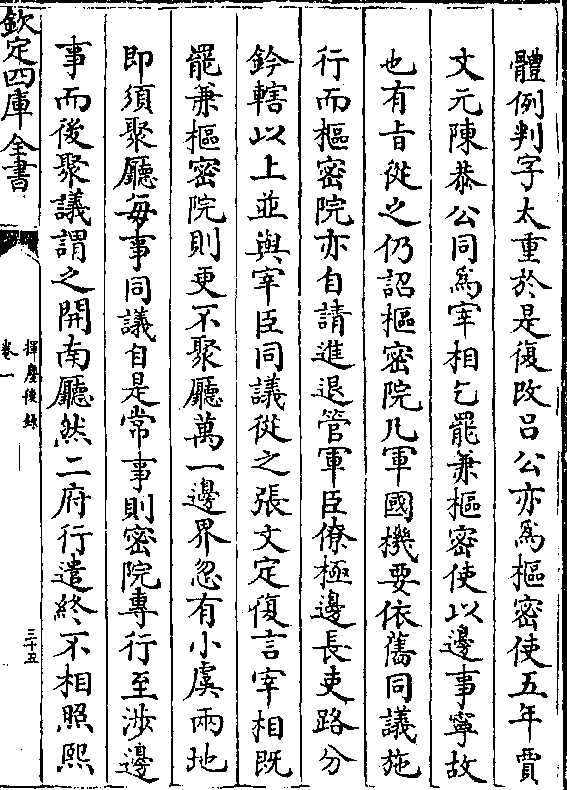 體例判字太重於是復改吕公亦爲樞密使五年賈
文元陳恭公同爲宰相乞罷兼樞密使以邊事寧故
也有旨從之仍詔樞密院凡軍國機要依舊同議施
行而樞密院亦自請進退管軍臣僚極邊長吏路分
鈐轄以上並與宰臣同議從之張文定復言宰相既
罷兼樞密院則更不聚廳萬一邊界忽有小虞兩地
即須聚廳每事同議自是常事則密院專行至涉邊
事而後聚議謂之開南廳然二府行遣終不相照熙
欽定四庫全書
揮麈後錄
卷一
三十五